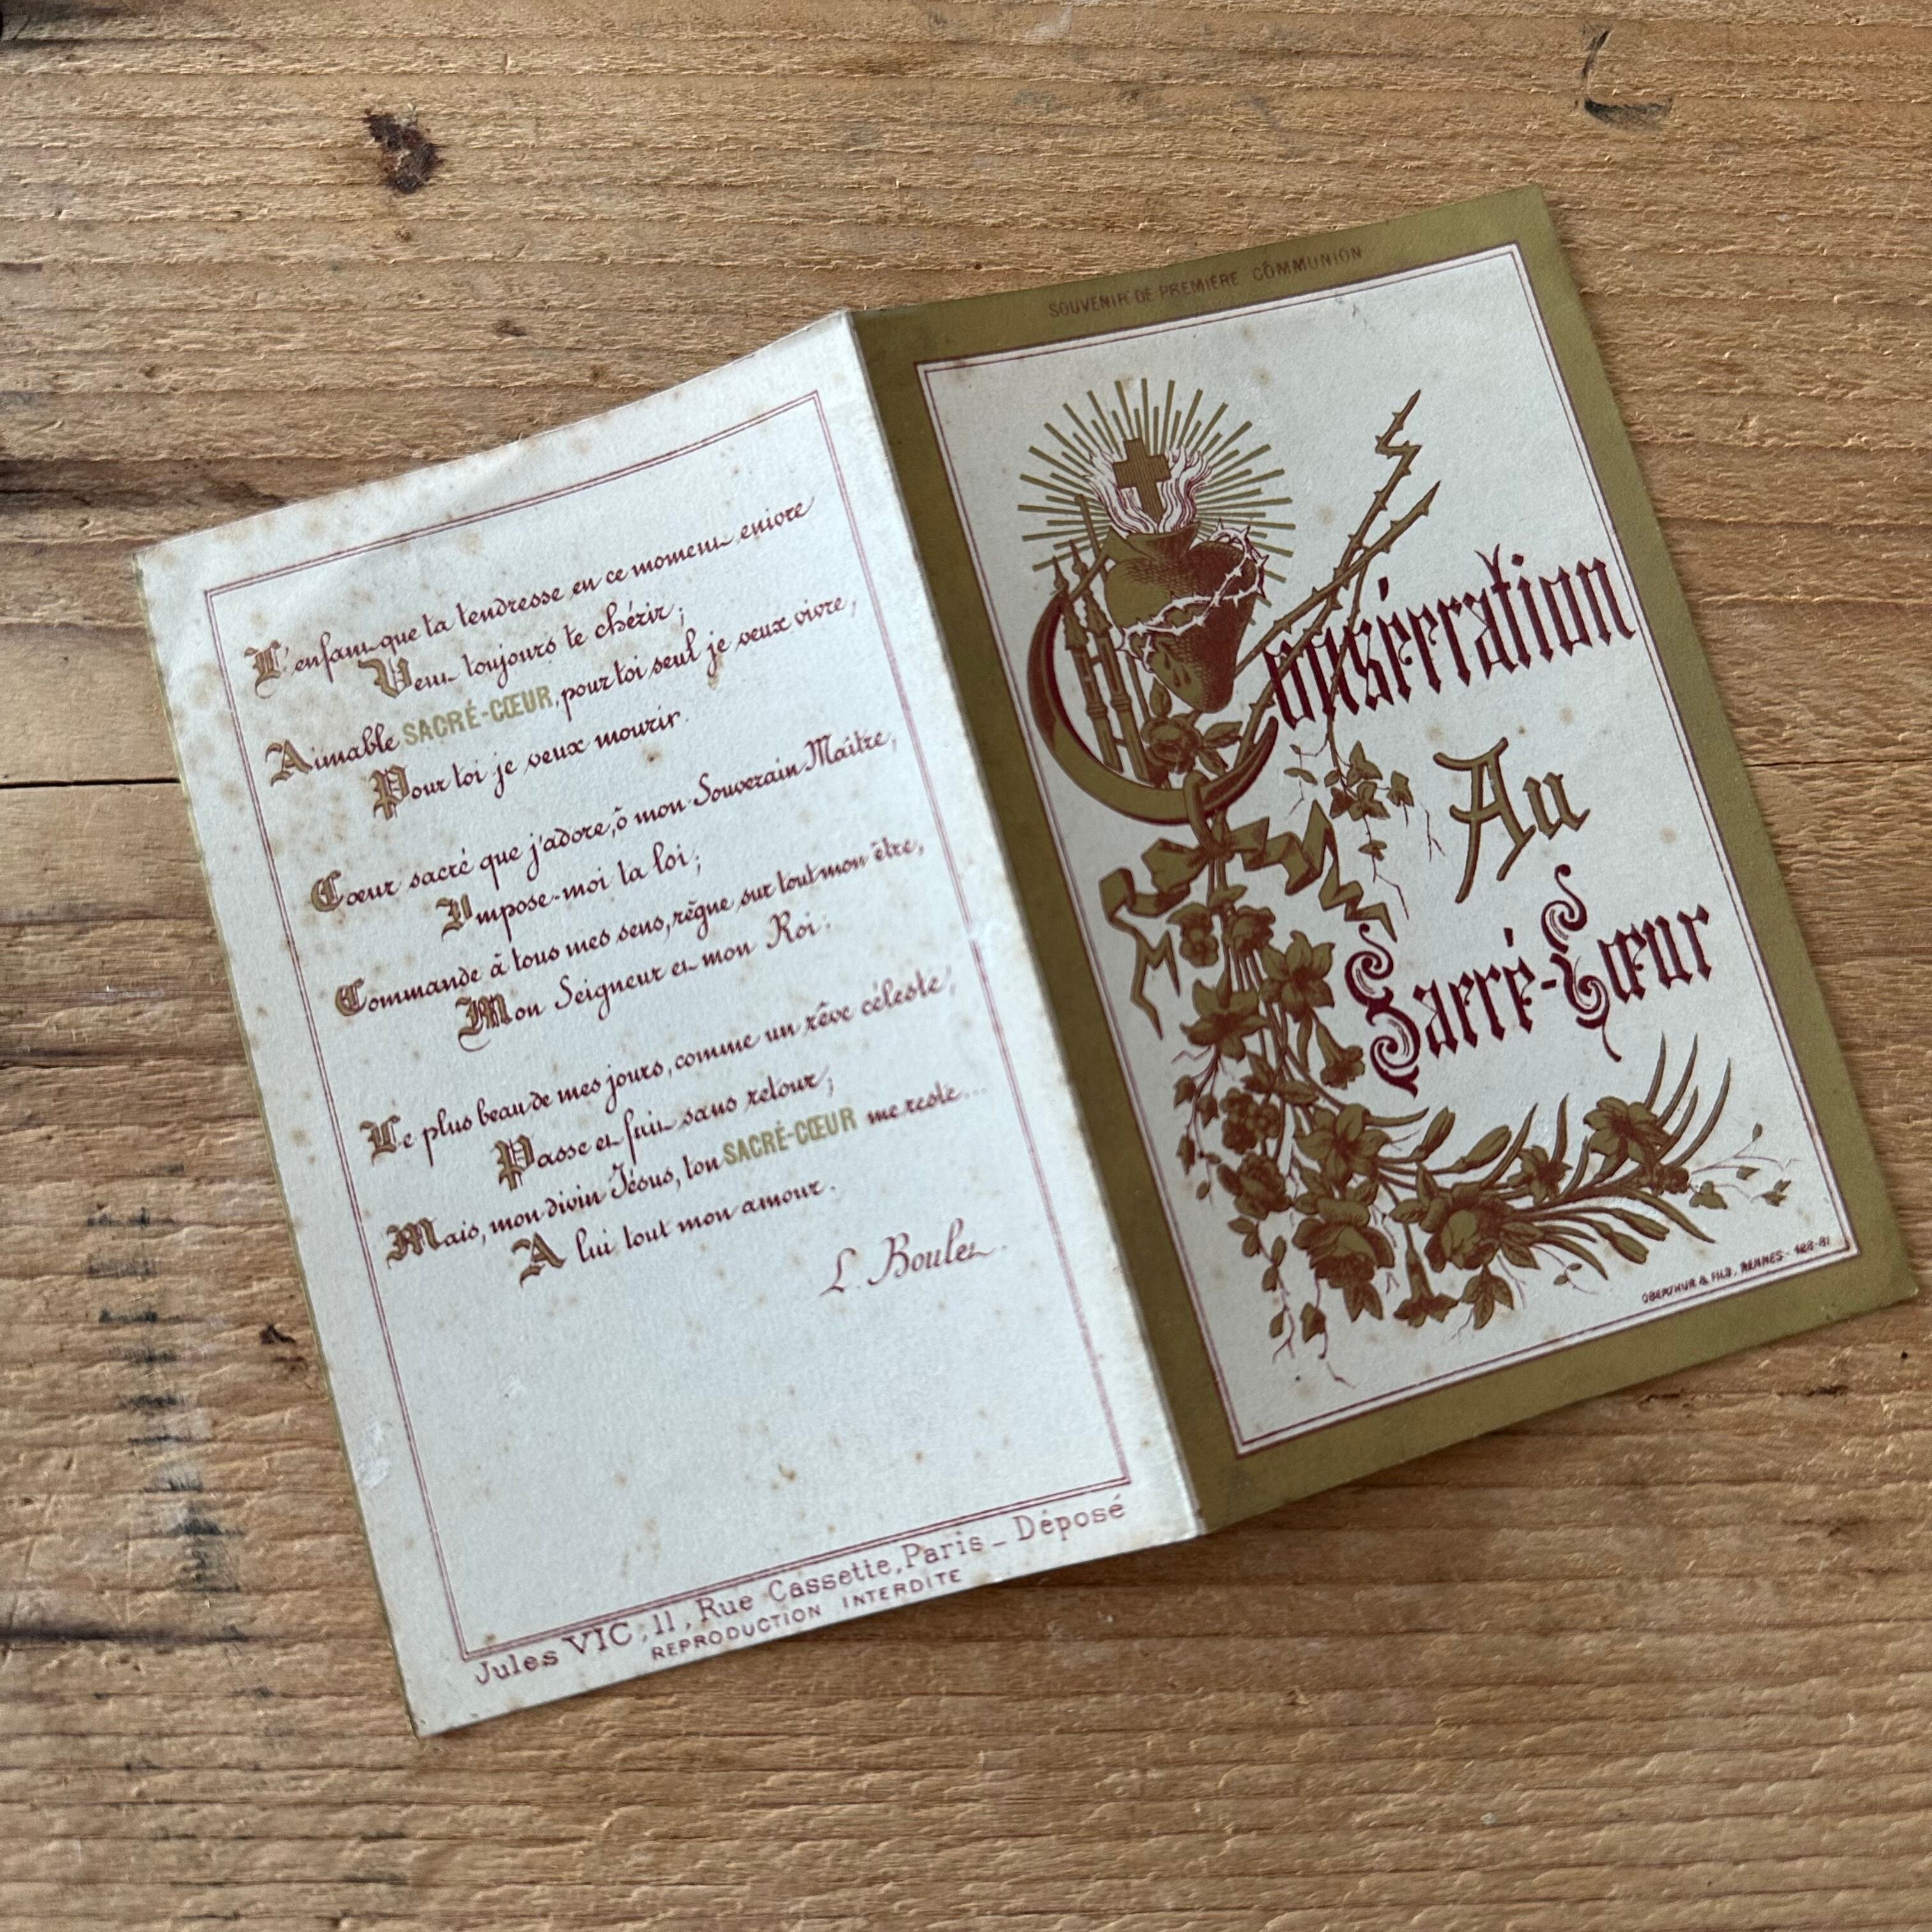 L'enfant que ta tendresse en ce moment enivre
Veut toujours te chérir;
Aimable SACRÉ-CŒUR, pour toi seul je veux vivre,
Pour toi je veux mourir.
Cœur sacré que j'adore, ô mon Souverain Maître,
Impose-moi ta loi;
Commande à tous mes sens, règne sur tout mon être,
Mon Seigneur et mon Roi!
Le plus beau de mes jours, comme un rêve céleste,
Passe et fuit sans retour;
Mais, mon divin Jésus, ton SACRÉ-CŒUR me reste...
A lui tout mon amour.
L. Boulet.
Jules VIC, 11, Rue Cassette, Paris _ Déposé
REPRODUCTION INTERDITE
SOUVENIR DE PREMIÈRE COMMUNION
Consécration
Au
Sacré-Cœur
OBERTHUR & FILS, RENNES - 428-81